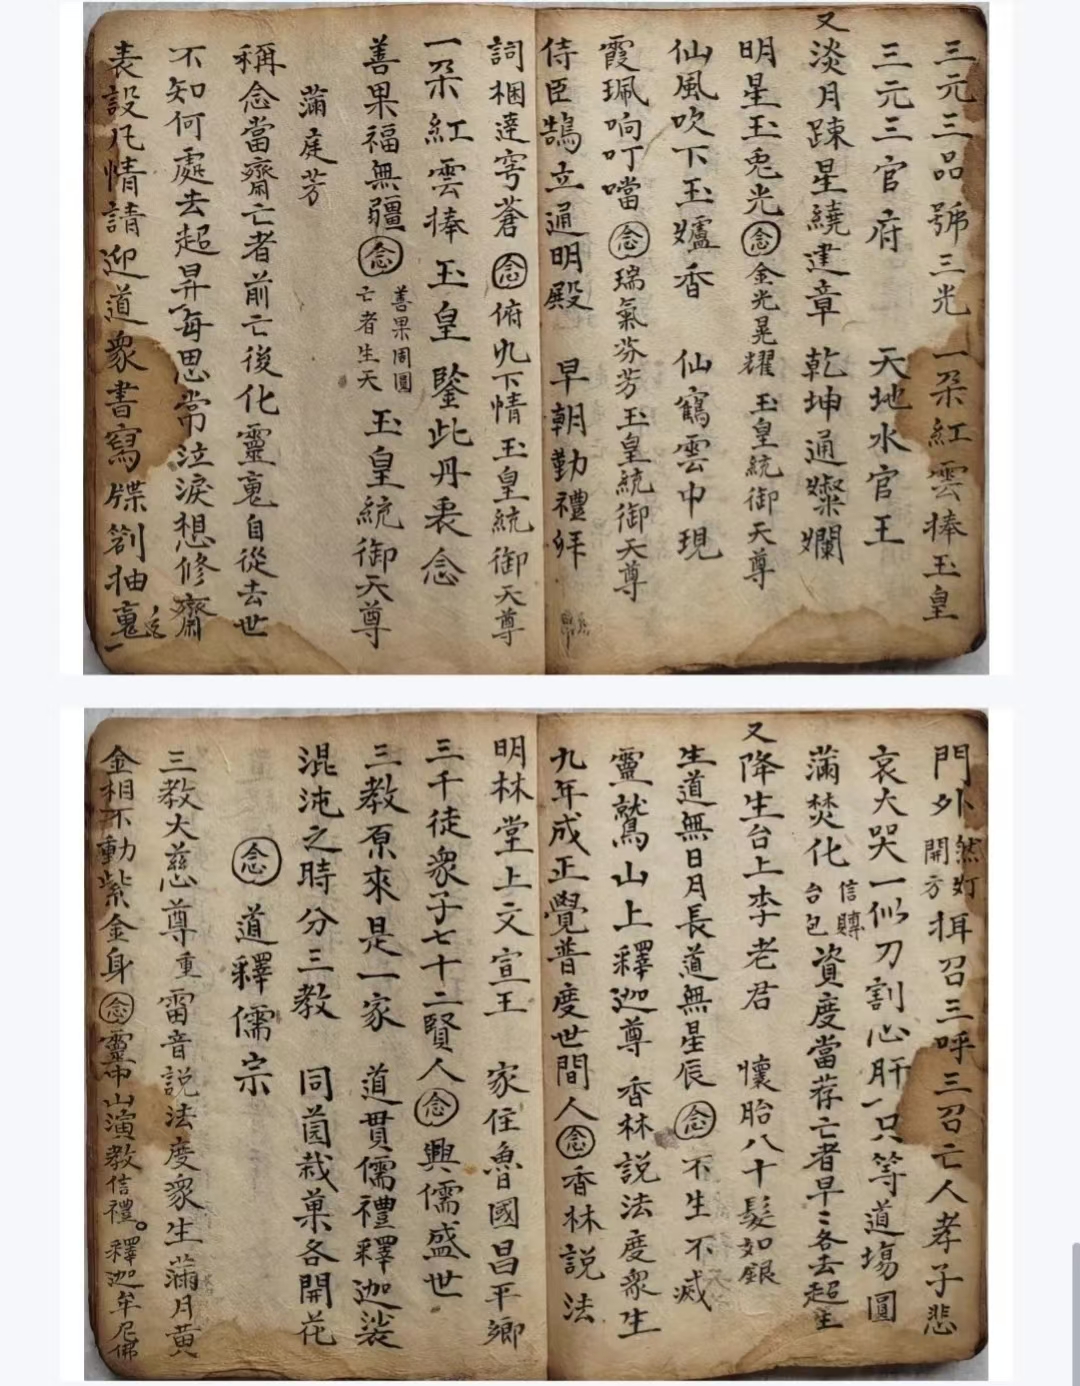 三元三品號三光　一朵紅雲捧玉皇
三元三官府　天地水官王
又淡月踈星繞建章　乾坤通燦爛
明星玉兎光念金光晃耀　玉皇統御天尊
仙風吹下玉爐香　仙鶴雲中現
霞珮响叮噹念瑞氣芬芳玉皇統御天尊
侍臣鵠立通明殿　早朝勤禮拜
詞梱達穹蒼念俯九下情玉皇統御天尊
一朵紅雲捧　玉皇鑒此丹衷念
善果福無疆念善果周圓亡者生天　玉皇統御天尊
滿庭芳
稱念當齋亡者前亡後化靈䰟自從去世
不知何處去超昇每思常泣淚想修齋
表設凡情請迎道衆書寫牒劄抽䰟
門外然灯開方揖召三呼三召亡人孝子悲
哀大哭一似刀割心肝一只等道塲圓
滿焚化信賻台包資度當荐亡者早三各去超生
又降生台上李老君　懷胎八十髮如銀
生道無日月長道無星辰念不生不滅
靈鷲山上釋迦尊　香林説法度衆生
九年成正覺普度世間人念香林説法
明林堂上文宣王　家住魯國昌平鄉
三千徒衆子七十二賢人念興儒盛世
三教原來是一家　道貫儒禮釋迦裟
混沌之時分三教　同園栽菓各開花
念道釋儒宗
三教大慈尊重雷音説法度衆生滿月黃
金相不動紫金身念靈山演教信禮。釋迦牟尼佛